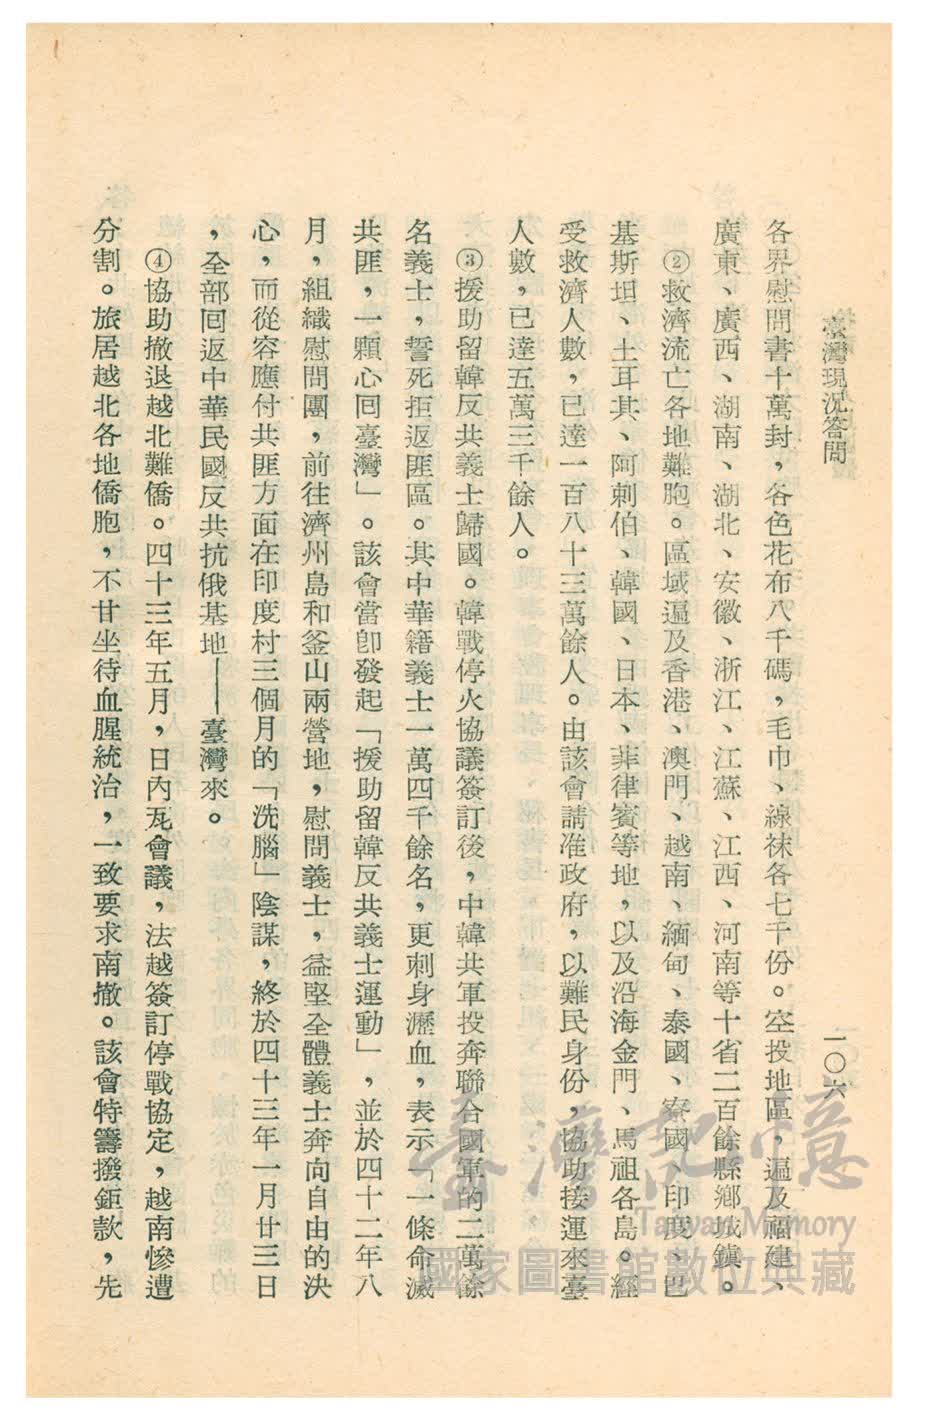 臺灣現況答問
一〇六
各界慰問書十萬封，各色花布八千碼，毛巾、線袜各七千份。空投地區，遍及福建、
廣東、廣西、湖南、湖北、安徽、浙江、江蘇、江西、河南等十省二百餘縣鄉城鎮。
②救濟流亡各地難胞。區域遍及香港、澳門、越南、緬甸、泰國、寮國、印度、巴
基斯坦、土耳其、阿刺伯、韓國、日本、菲律賓等地，以及沿海金門、馬祖各島。經
受救濟人數，已達一百八十三萬餘人。由該會請准政府，以難民身份，協助接運來臺
人數，已達五萬三千餘人。
③援助留韓反共義士歸國。韓戰停火協議簽訂後，中韓共軍投奔聯合國軍的二萬餘
名義士，誓死拒返匪區。其中華籍義士一萬四千餘名，更刺身瀝血，表示「一條命滅
共匪，一顆心回臺灣」。該會當卽發起「援助留韓反共義士運動」，並於四十二年八
月，組織慰問團，前往濟州島和釜山兩營地，慰問義士，益堅全體義士奔向自由的決
心，而從容應付共匪方面在印度村三個月的「洗腦」陰謀，終於四十三年一月廿三日
，全部回返中華民國反共抗俄基地——臺灣來。
④協助撤退越北難僑。四十三年五月，日內瓦會議，法越簽訂停戰協定，越南慘遭
分割。旅居越北各地僑胞，不甘坐待血腥統治，一致要求南撤。該會特籌撥鉅款，先
臺灣記憶
Taiwan Memory
國家圖書館數位典藏